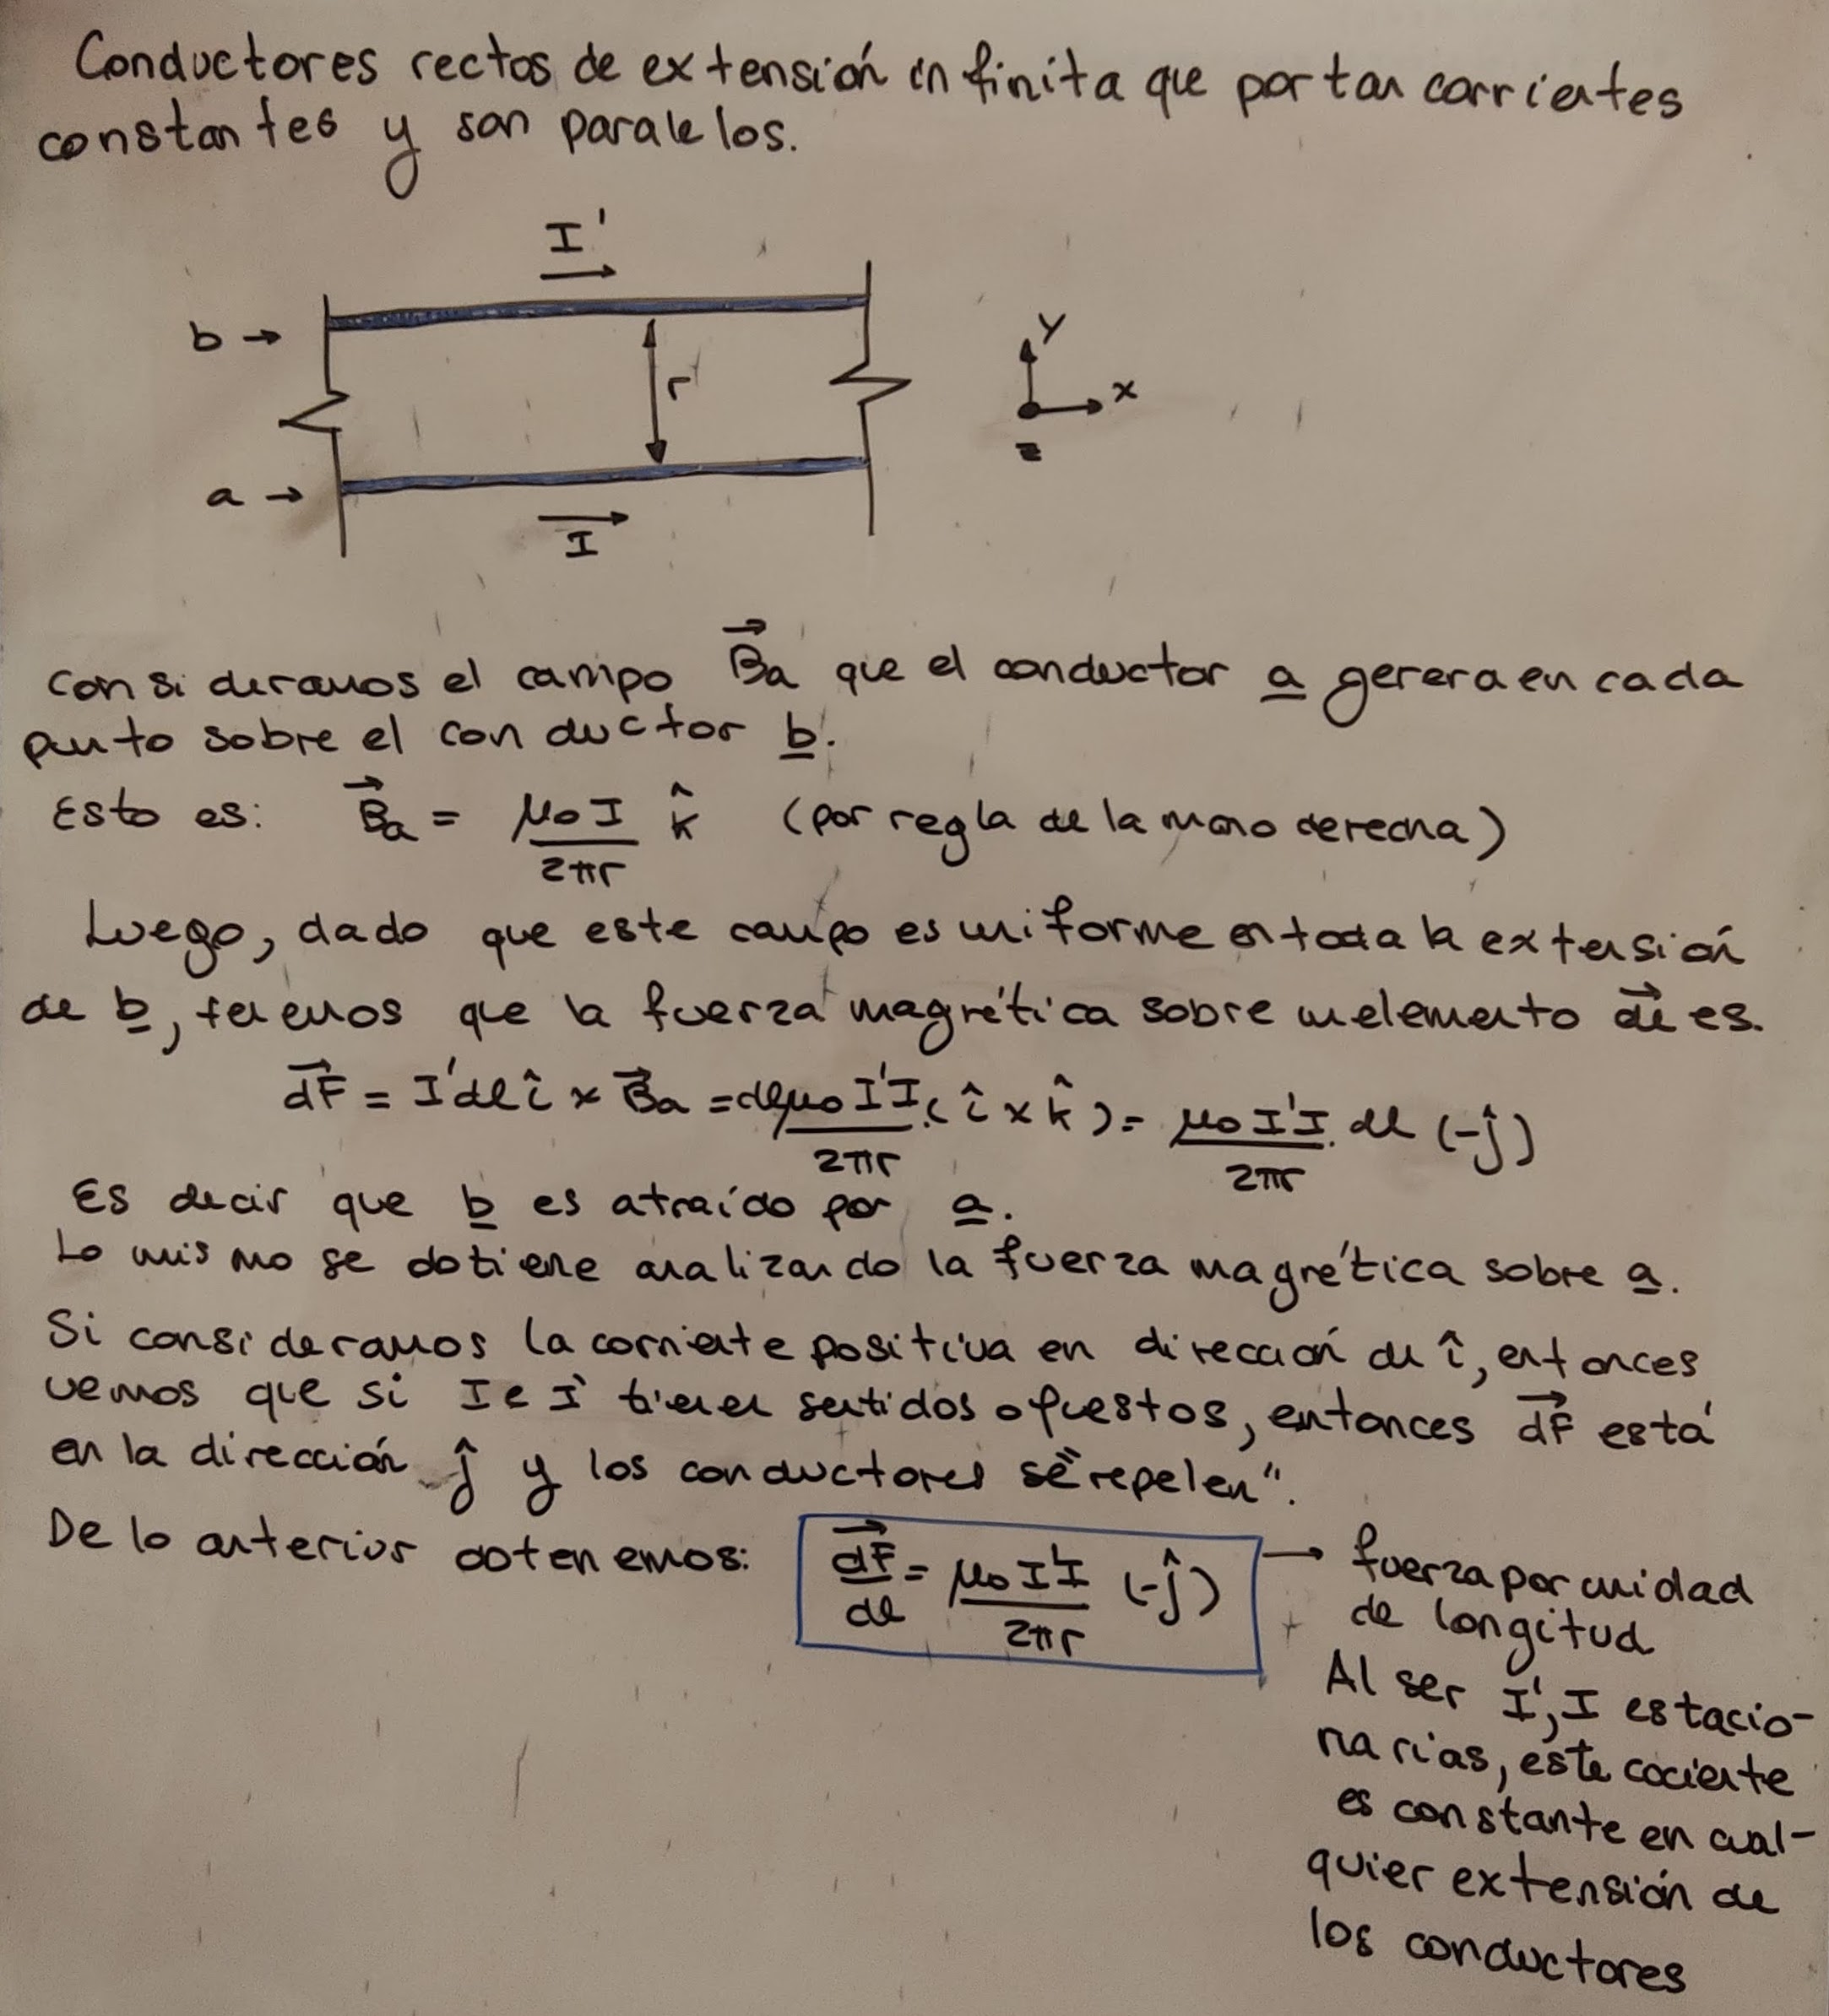 Conductores rectos de extensión infinita que portan corrientes
constantes y son paralelos.
I'
b →
r
y
x
z
a →
I
consideramos el campo \vec{B}a que el conductor a genera en cada
punto sobre el conductor b.
Esto es: \vec{B}a = μ₀I / 2πr k̂ (por regla de la mano derecha)
Luego, dado que este campo es uniforme en toda la extensión
de b, tenemos que la fuerza magnética sobre un elemento \vec{dl} es.
\vec{dF} = I'dl î × \vec{B}a = dl μ₀I'I / 2πr · (î × k̂) = μ₀I'I / 2πr · dl (-ĵ)
Es decir que b es atraído por a.
Lo mismo se obtiene analizando la fuerza magnética sobre a.
Si consideramos la corriente positiva en dirección de î, entonces
vemos que si I e I' tienen sentidos opuestos, entonces \vec{dF} está
en la dirección ĵ y los conductores se "repelen".
De lo anterior obtenemos: \vec{dF}/dl = μ₀I'I / 2πr (-ĵ) → fuerza por unidad
de longitud
Al ser I', I estacio-
narias, este cociente
es constante en cual-
quier extensión de
los conductores